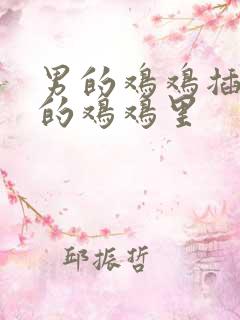 男的鸡鸡插
的鸡鸡里
邱振哲